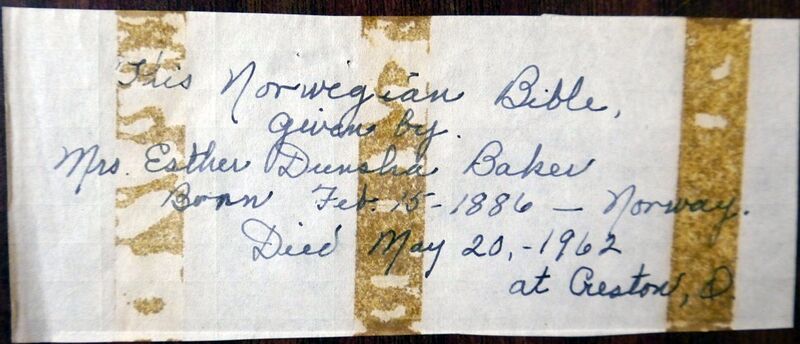 This Norwegian Bible,
given by.
Mrs. Esther Dunsha Baker
Born Feb. 15-1886 — Norway.
Died May 20,-1962
at Creston, O.